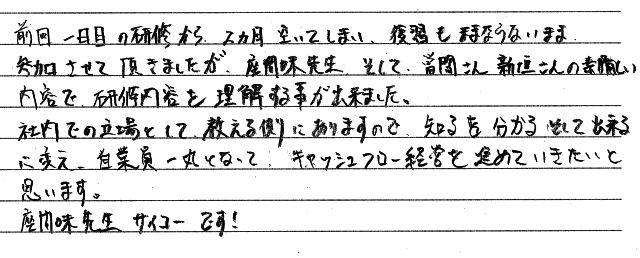 前回 一日目の研修から 2カ月 空いてしまい、復習もままならないまま
参加させて頂きましたが、座間味先生 そして、當間さん 新垣さんの素晴しい
内容で 研修内容を理解する事が出来ました。
社内での立場として 教える側にありますので、知るを 分かる そして 出来る
に変え、自業員一丸となって、キャッシュフロー経営を進めていきたいと
思います。
座間味先生 サイコーです!